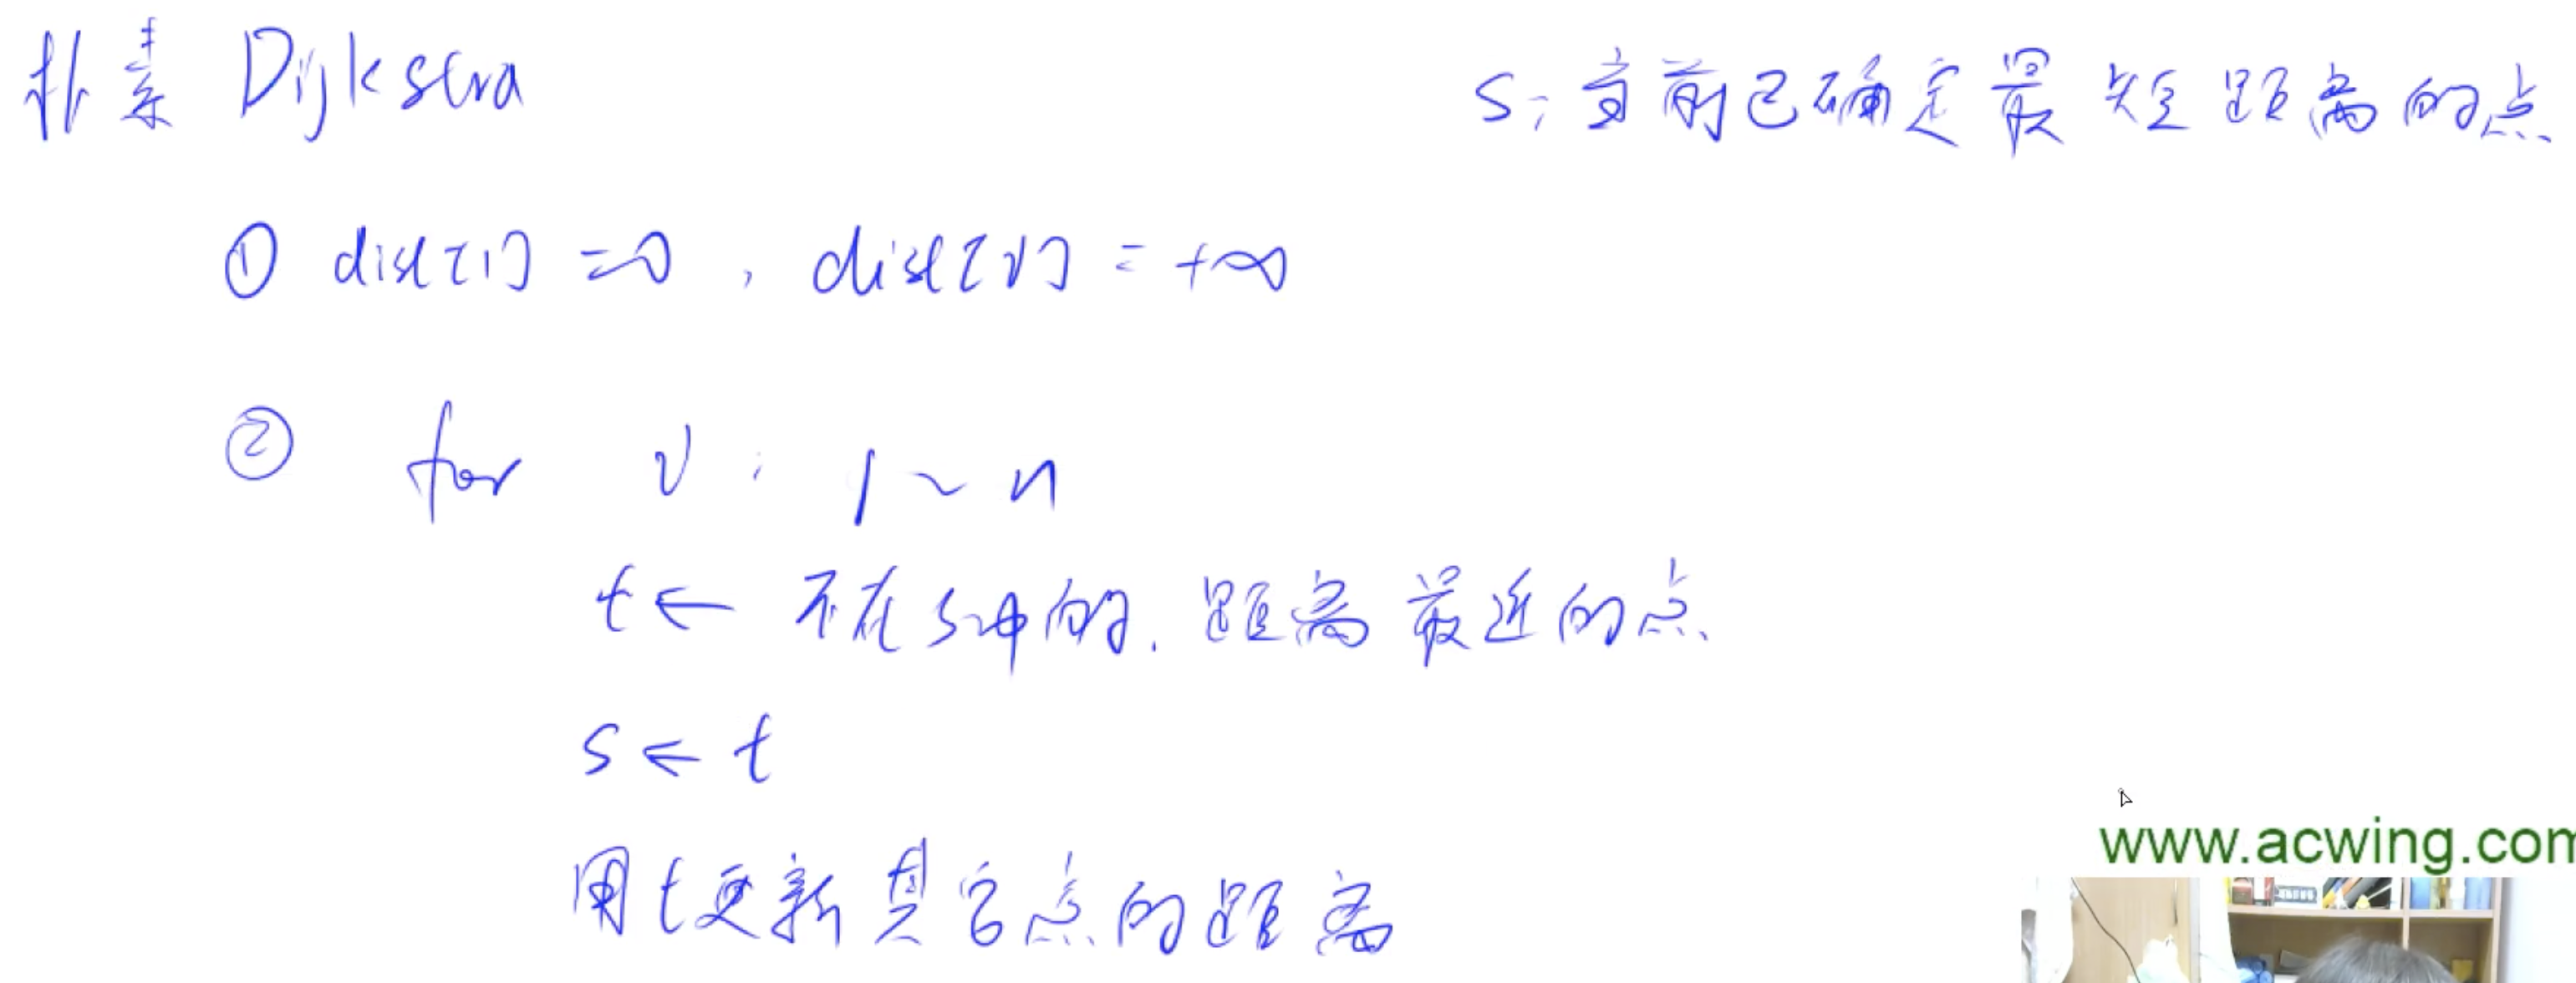 朴素 Dijkstra
s: 当前已确定最短距离的点
① dist[1] = 0, dist[i] = +∞
② for i: 1~n
t ← 不在s中的, 距离最近的点
s ← t
用t更新其它点的距离
www.acwing.com